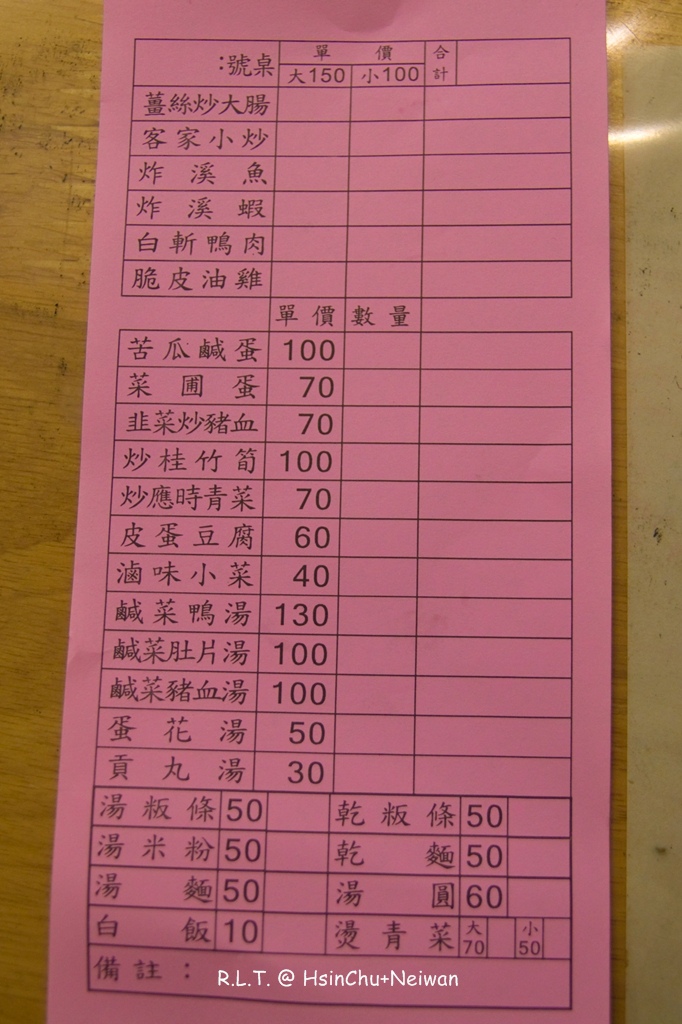 :號桌 單價 合計
大150 小100
薑絲炒大腸
客家小炒
炸溪魚
炸溪蝦
白斬鴨肉
脆皮油雞
單價 數量
苦瓜鹹蛋 100
菜圃蛋 70
韭菜炒豬血 70
炒桂竹筍 100
炒應時青菜 70
皮蛋豆腐 60
滷味小菜 40
鹹菜鴨湯 130
鹹菜肚片湯 100
鹹菜豬血湯 100
蛋花湯 50
貢丸湯 30
湯粄條 50 乾粄條 50
湯米粉 50 乾麵 50
湯麵 50 湯圓 60
白飯 10 燙青菜 大70 小50
備註：
R.L.T. @ HsinChu+Neiwan